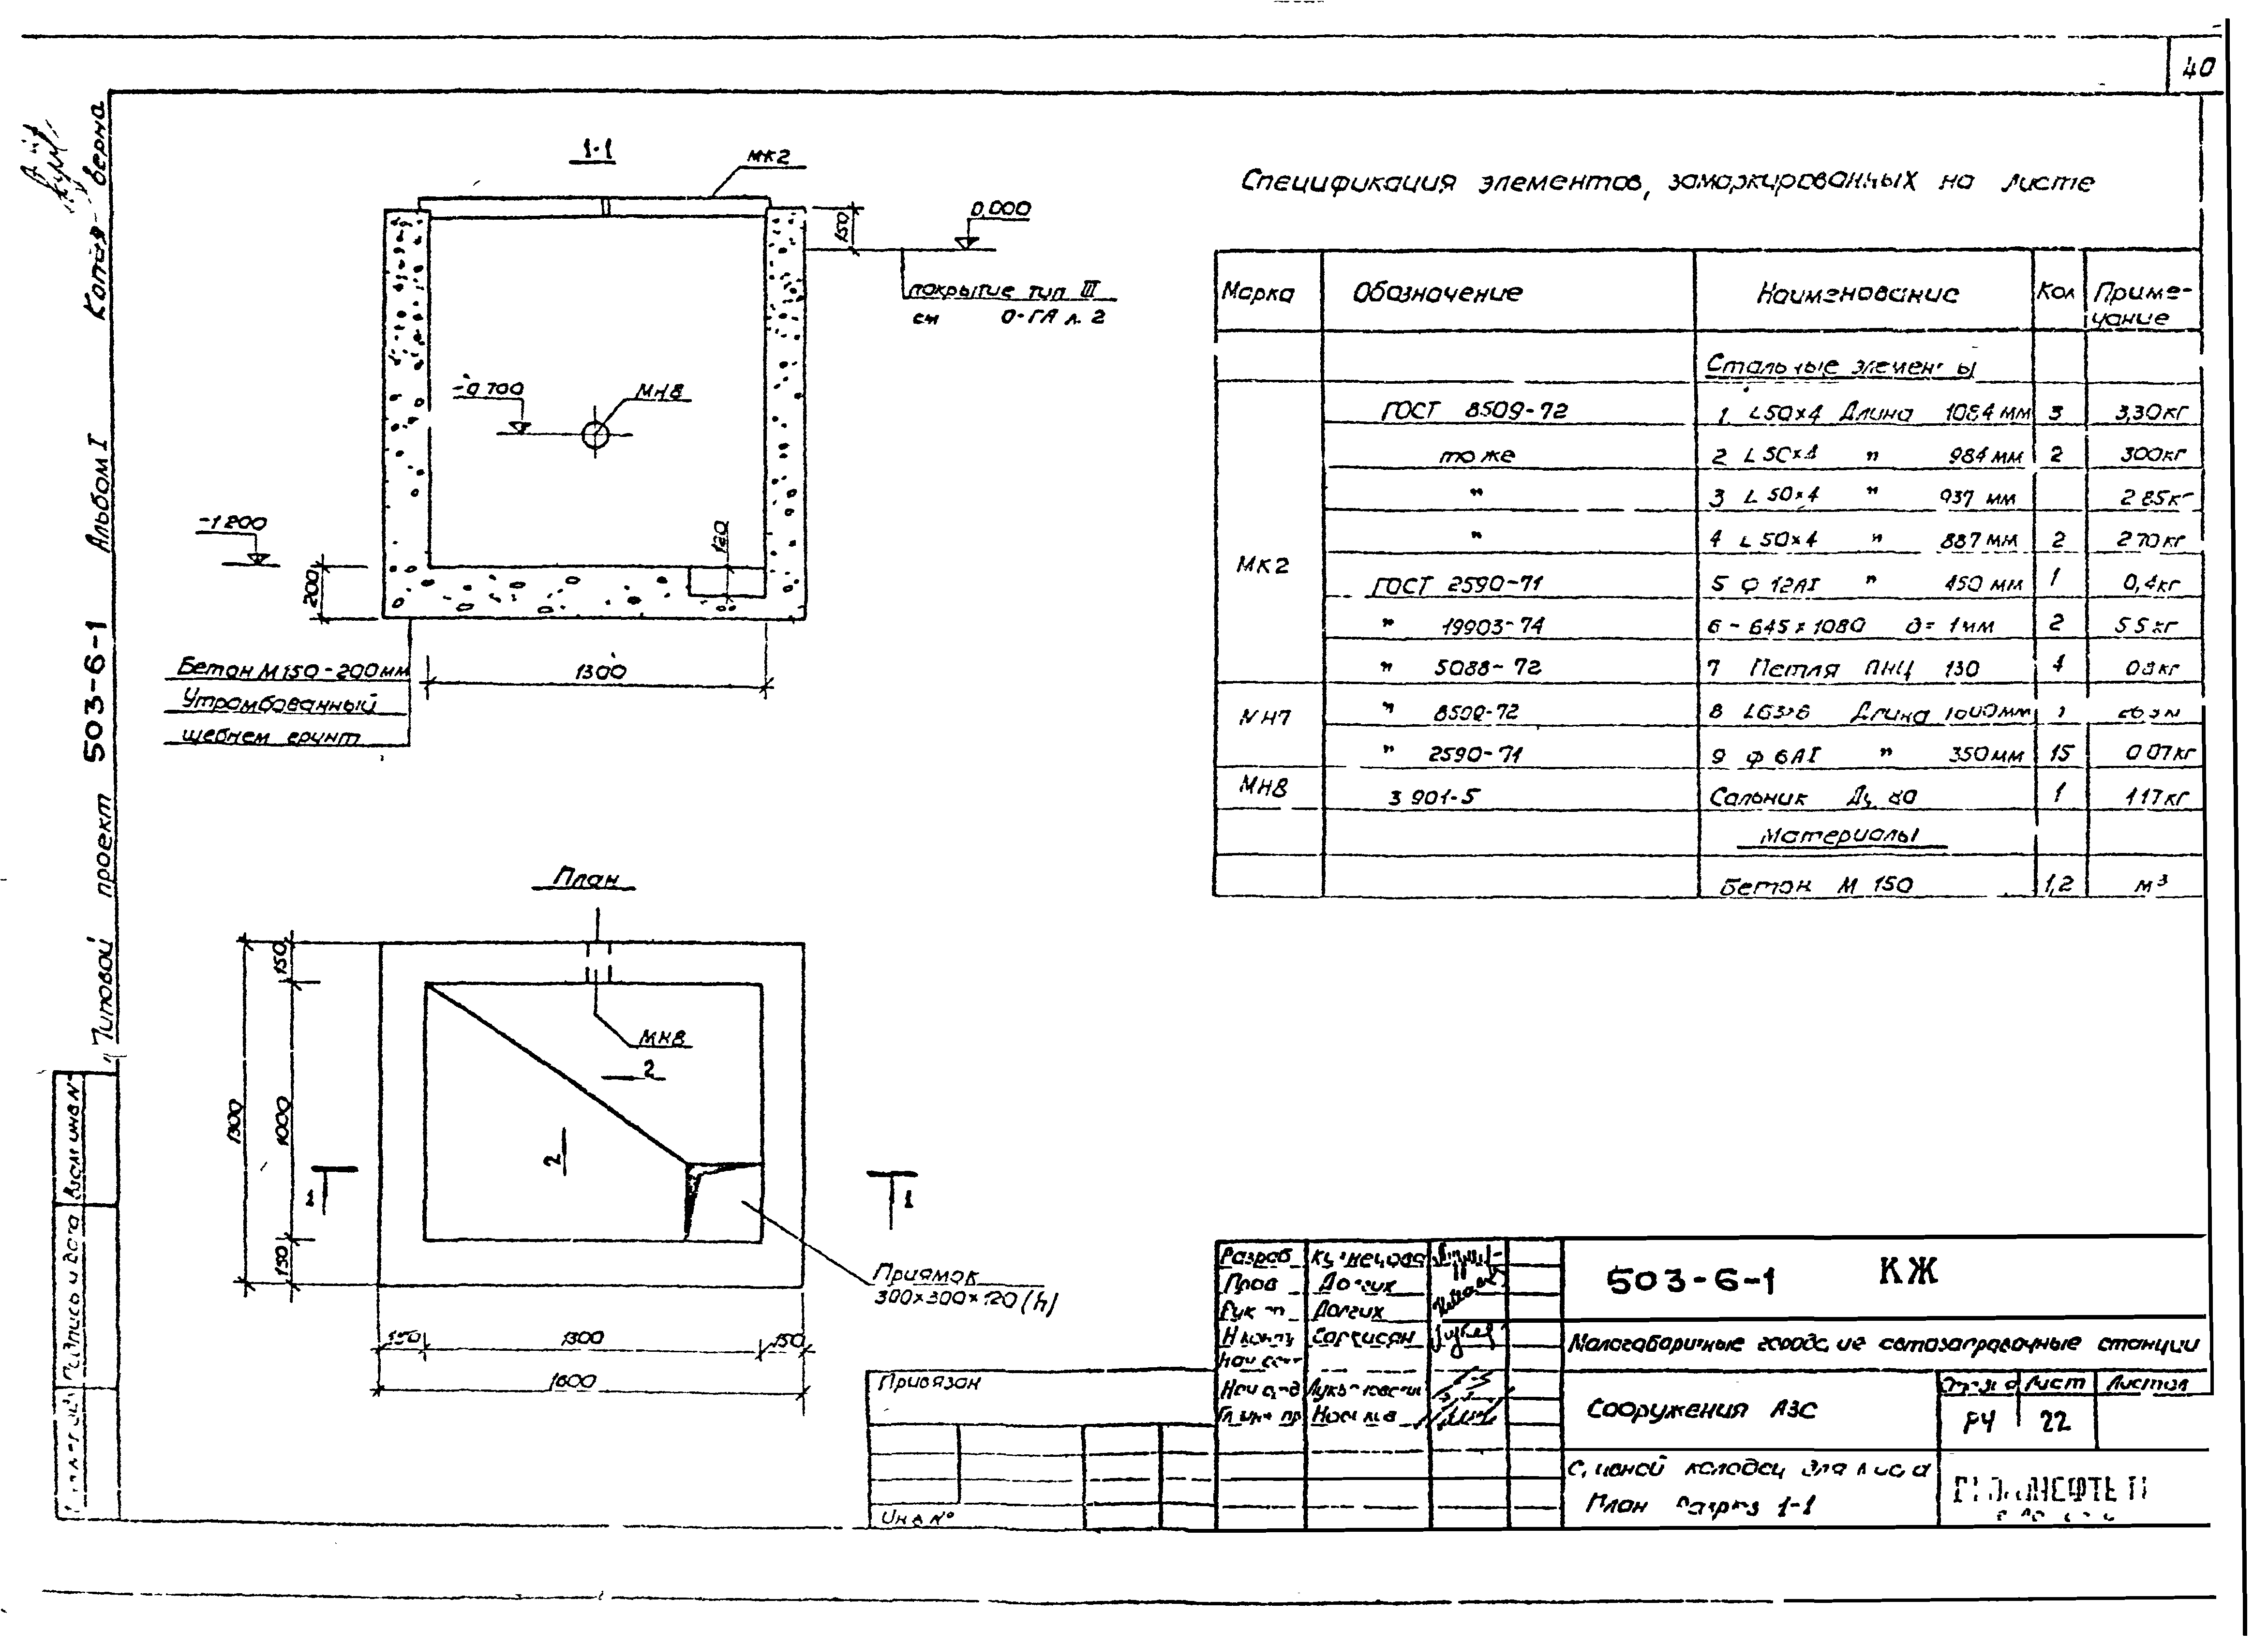 40
Копия верна
Альбом I
Типовой проект 503-6-1
1-1
МК2
0,000
150
покрытие тип III
см 0-ГП л. 2
-0.700
МН8
-1.200
200
120
1300
Бетон М150-200мм
Утрамбованный
щебнем грунт
План
150
1000
150
1300
МН8
2
2
1
1
Приямок
300×300×120 (h)
150 1300 150
1600
Спецификация элементов, замаркированных на листе
Марка Обозначение Наименование Кол Приме-
чание
Стальные элементы
МК2
ГОСТ 8509-72 1 L50×4 Длина 1084 мм 3 3,30кг
то же 2 L50×4 " 984 мм 2 3.00кг
" 3 L50×4 " 937 мм 2.85кг
" 4 L50×4 " 887 мм 2 2.70кг
ГОСТ 2590-71 5 ф 12АI " 450 мм 1 0,4кг
" 19903-74 6 - 645×1080 δ=1мм 2 5.5кг
" 5088-72 7 Петля ПНЦ 130 4 0.8кг
МН7 " 8509-72 8 L63×6 Длина мм
" 2590-71 9 ф 6АI " 350мм 15 0.07кг
МН8 3.901-5 Сальник Ду 80 1 11.7кг
Материалы
Бетон М 150 1,2 м³
Разраб Кузнецова
Пров Долгих
Рук Долгих
Н контр Саркисян
Нач
Нач
503-6-1 КЖ
Малогабаритные городские автозаправочные станции
Сооружения АЗС
Лист Листов
РЧ 22
колодец для
План Разрез 1-1
Привязан
Инв №
Взам инв N
Подпись и дата